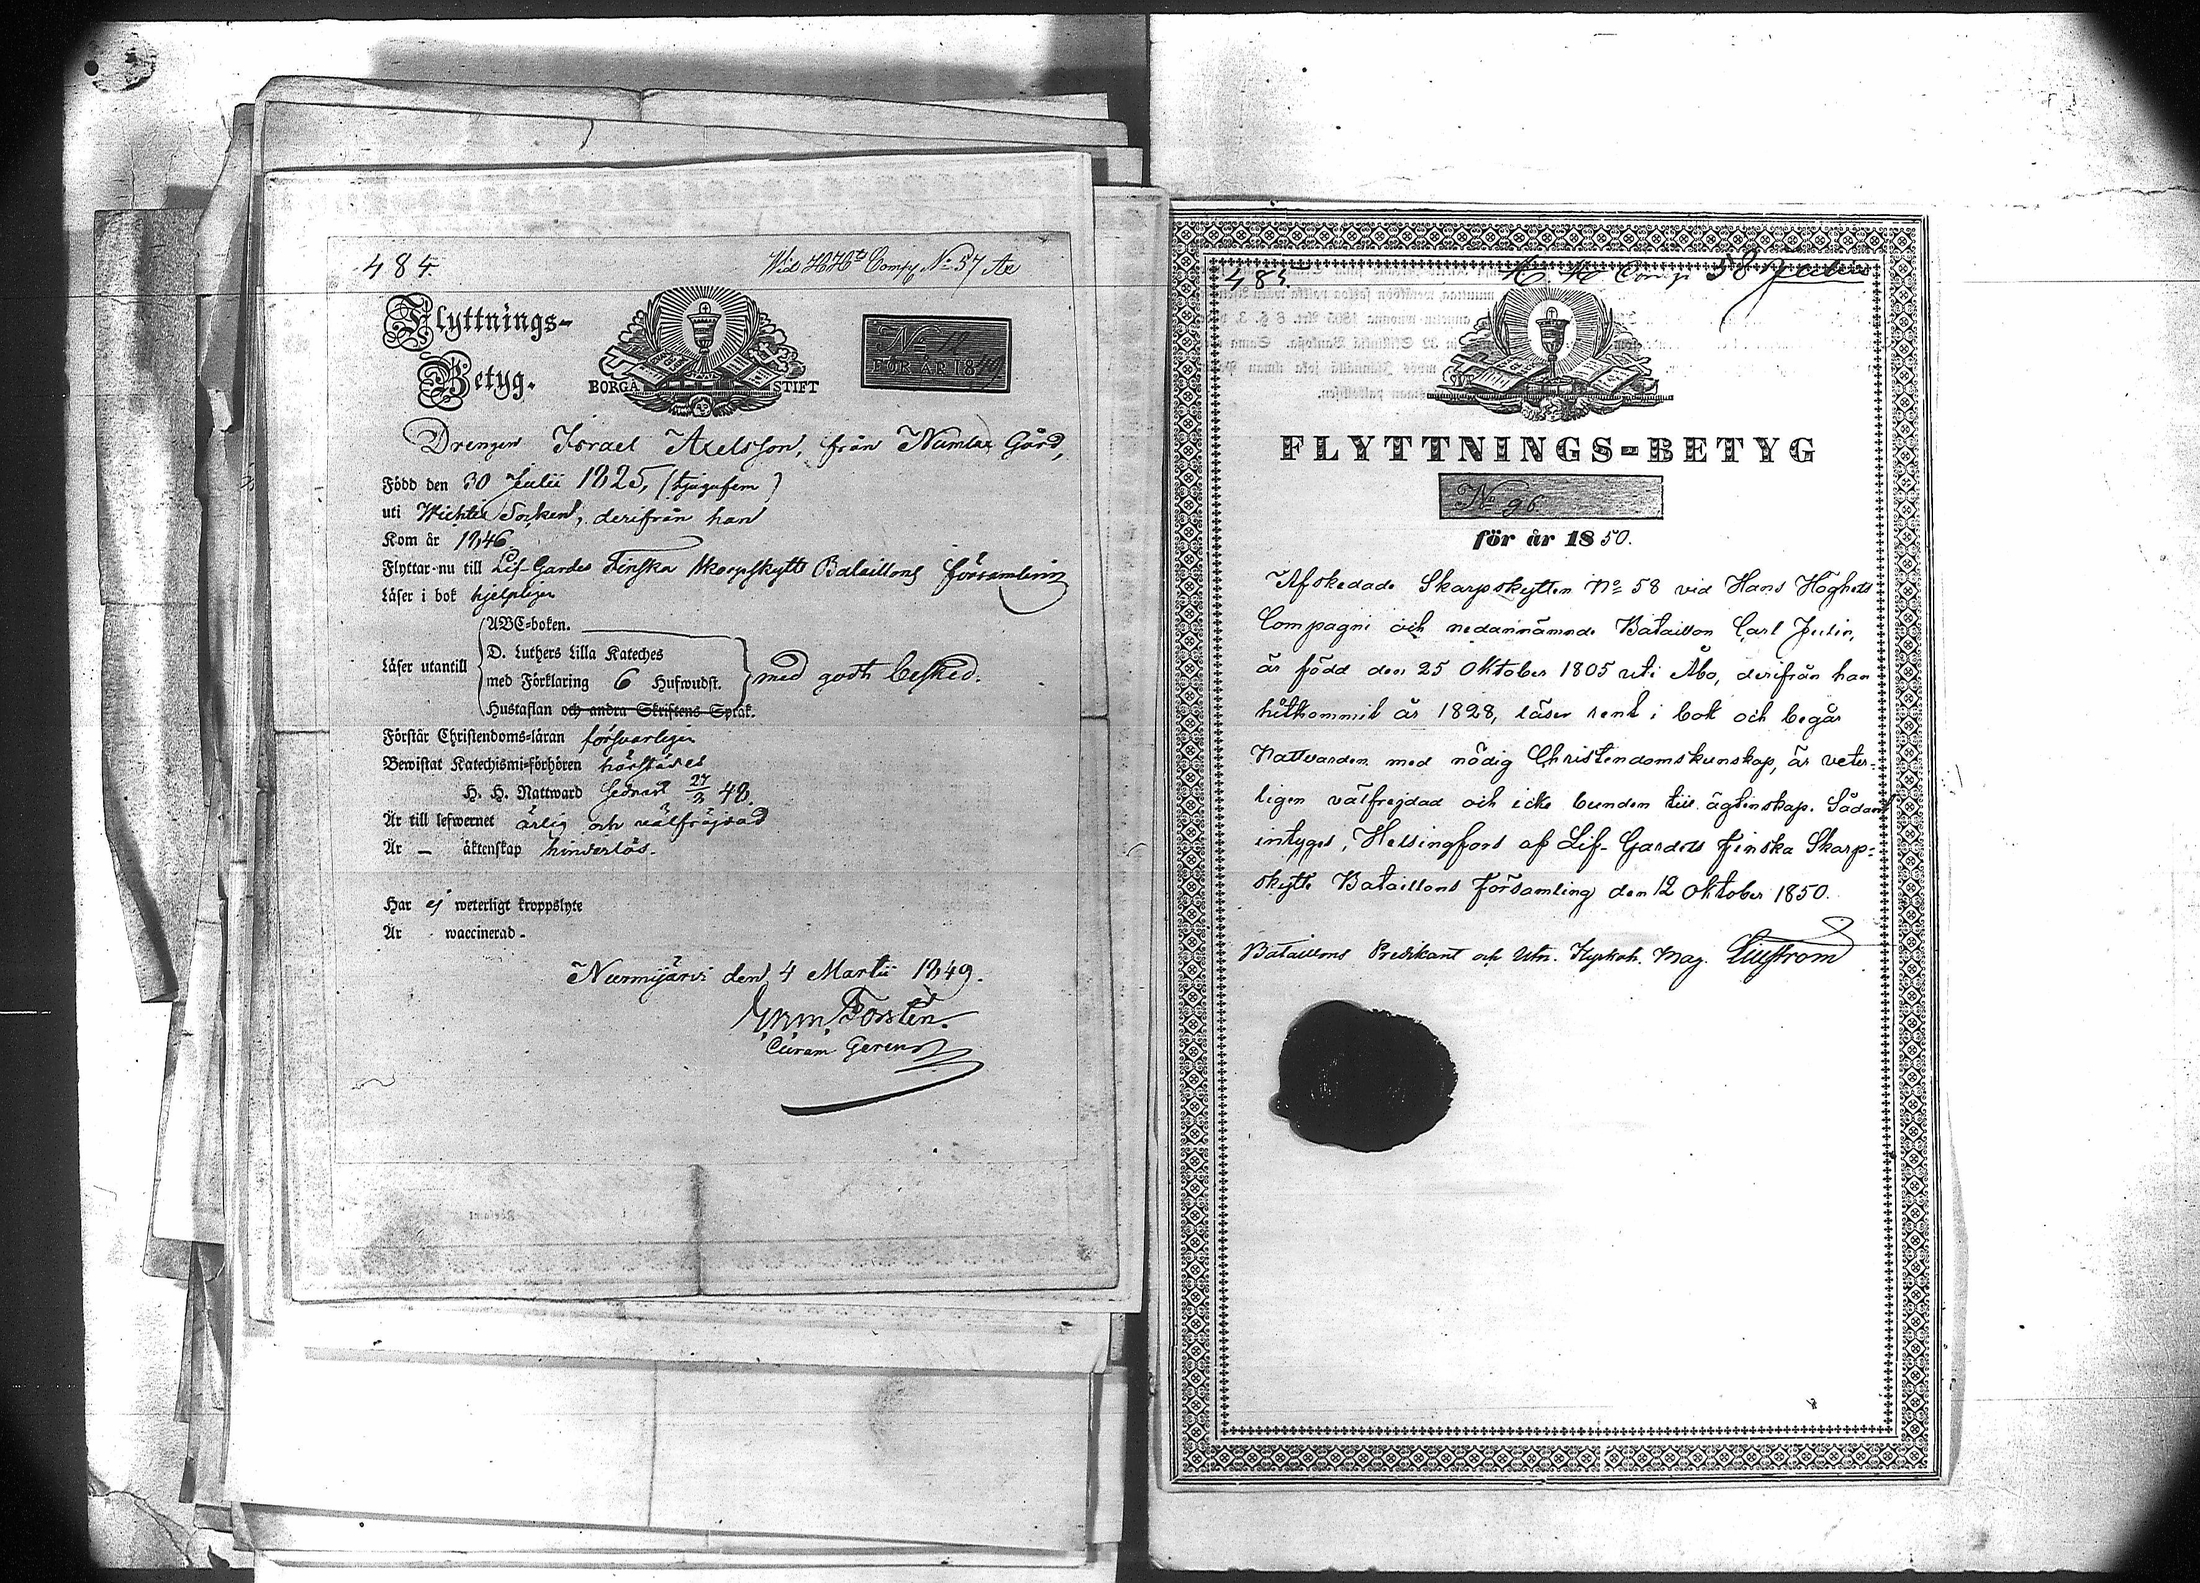 484.
Wid H H:s Compy. No 57 Ax
Flyttnings-
Betyg.
BORGÅ STIFT
No 11
FÖR ÅR 1849
Drengen Israel Axelsson, från Numlax Gård,
Född den 30 Julii 1825, (tjugufem)
uti Wichtis Socken, derifrån han
Kom år 1846
Flyttar nu till Lif-Gardes Finska Skarpskytte Bataillons församling
Läser i bok hjelpligen
ABC-boken.
D. Luthers Lilla Kateches
Läser utantill med Förklaring 6 Hufwudst. med godt besked.
Hustaflan och andra Skriftens Språk.
Förstår Christendoms-läran försvarligen
Bewistat Katechismi-förhören härstädes
H. H. Nattward senast 27/3 48.
Är till lefwernet ärlig och välfräjdad
Är — äktenskap hinderlös.
Har ej weterligt kroppslyte
Är waccinerad.
Nurmijärvi den 4 Martii 1849.
Forstén.
Curam Gerens
485.
H. H. Comp 58 Julin
FLYTTNINGS-BETYG
No 96
för år 1850.
Afskedade Skarpskytten No 58 vid Hans Höghets
Compagni och nedannämnde Bataillon Carl Julin,
är född den 25 Oktober 1805 uti Åbo, derifrån han
hitkommit år 1828, läser rent i bok och begår
Nattvarden med nödig Christendomskunskap, är veter-
ligen välfrejdad och icke bunden till ägtenskap. Sådant
intygas, Helsingfors af Lif-Gardets Finska Skarp-
skytte Bataillons Församling den 12 Oktober 1850.
Bataillons Predikant och Utn. Kyrkoh. Mag. Liljström